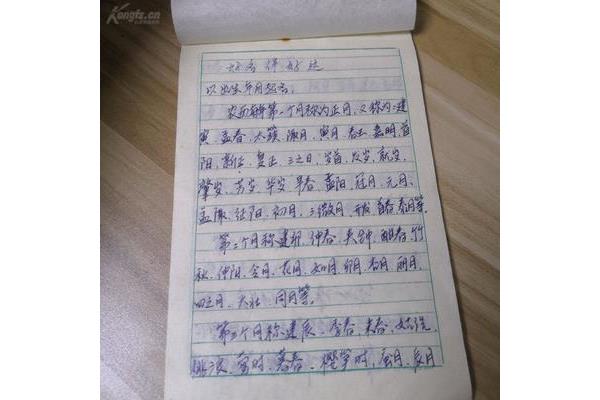 Kongfz.cn
好名伴好运
以出生年月起名。
农历每年第一个月称为正月，又称为：建
寅、孟春、太簇、陬月、寅月、春王、嘉明、首
阳、新正、复正、三之日、岁首、发岁、献岁、
肇岁、芳岁、华岁、早春、孟阳、冠月、元月、
孟陬、征阳、初月、三微月、开首春月等。
第二个月称建卯、仲春、夹钟、酣春、竹
秋、仲阳、令月、花月、如月、卯月、杏月、丽月、
四之月、大壮、同月等。
第三个月称建辰、季春、末春、姑洗、
桃浪、蚕时、暮春、樱笋时、蚕月、辰月